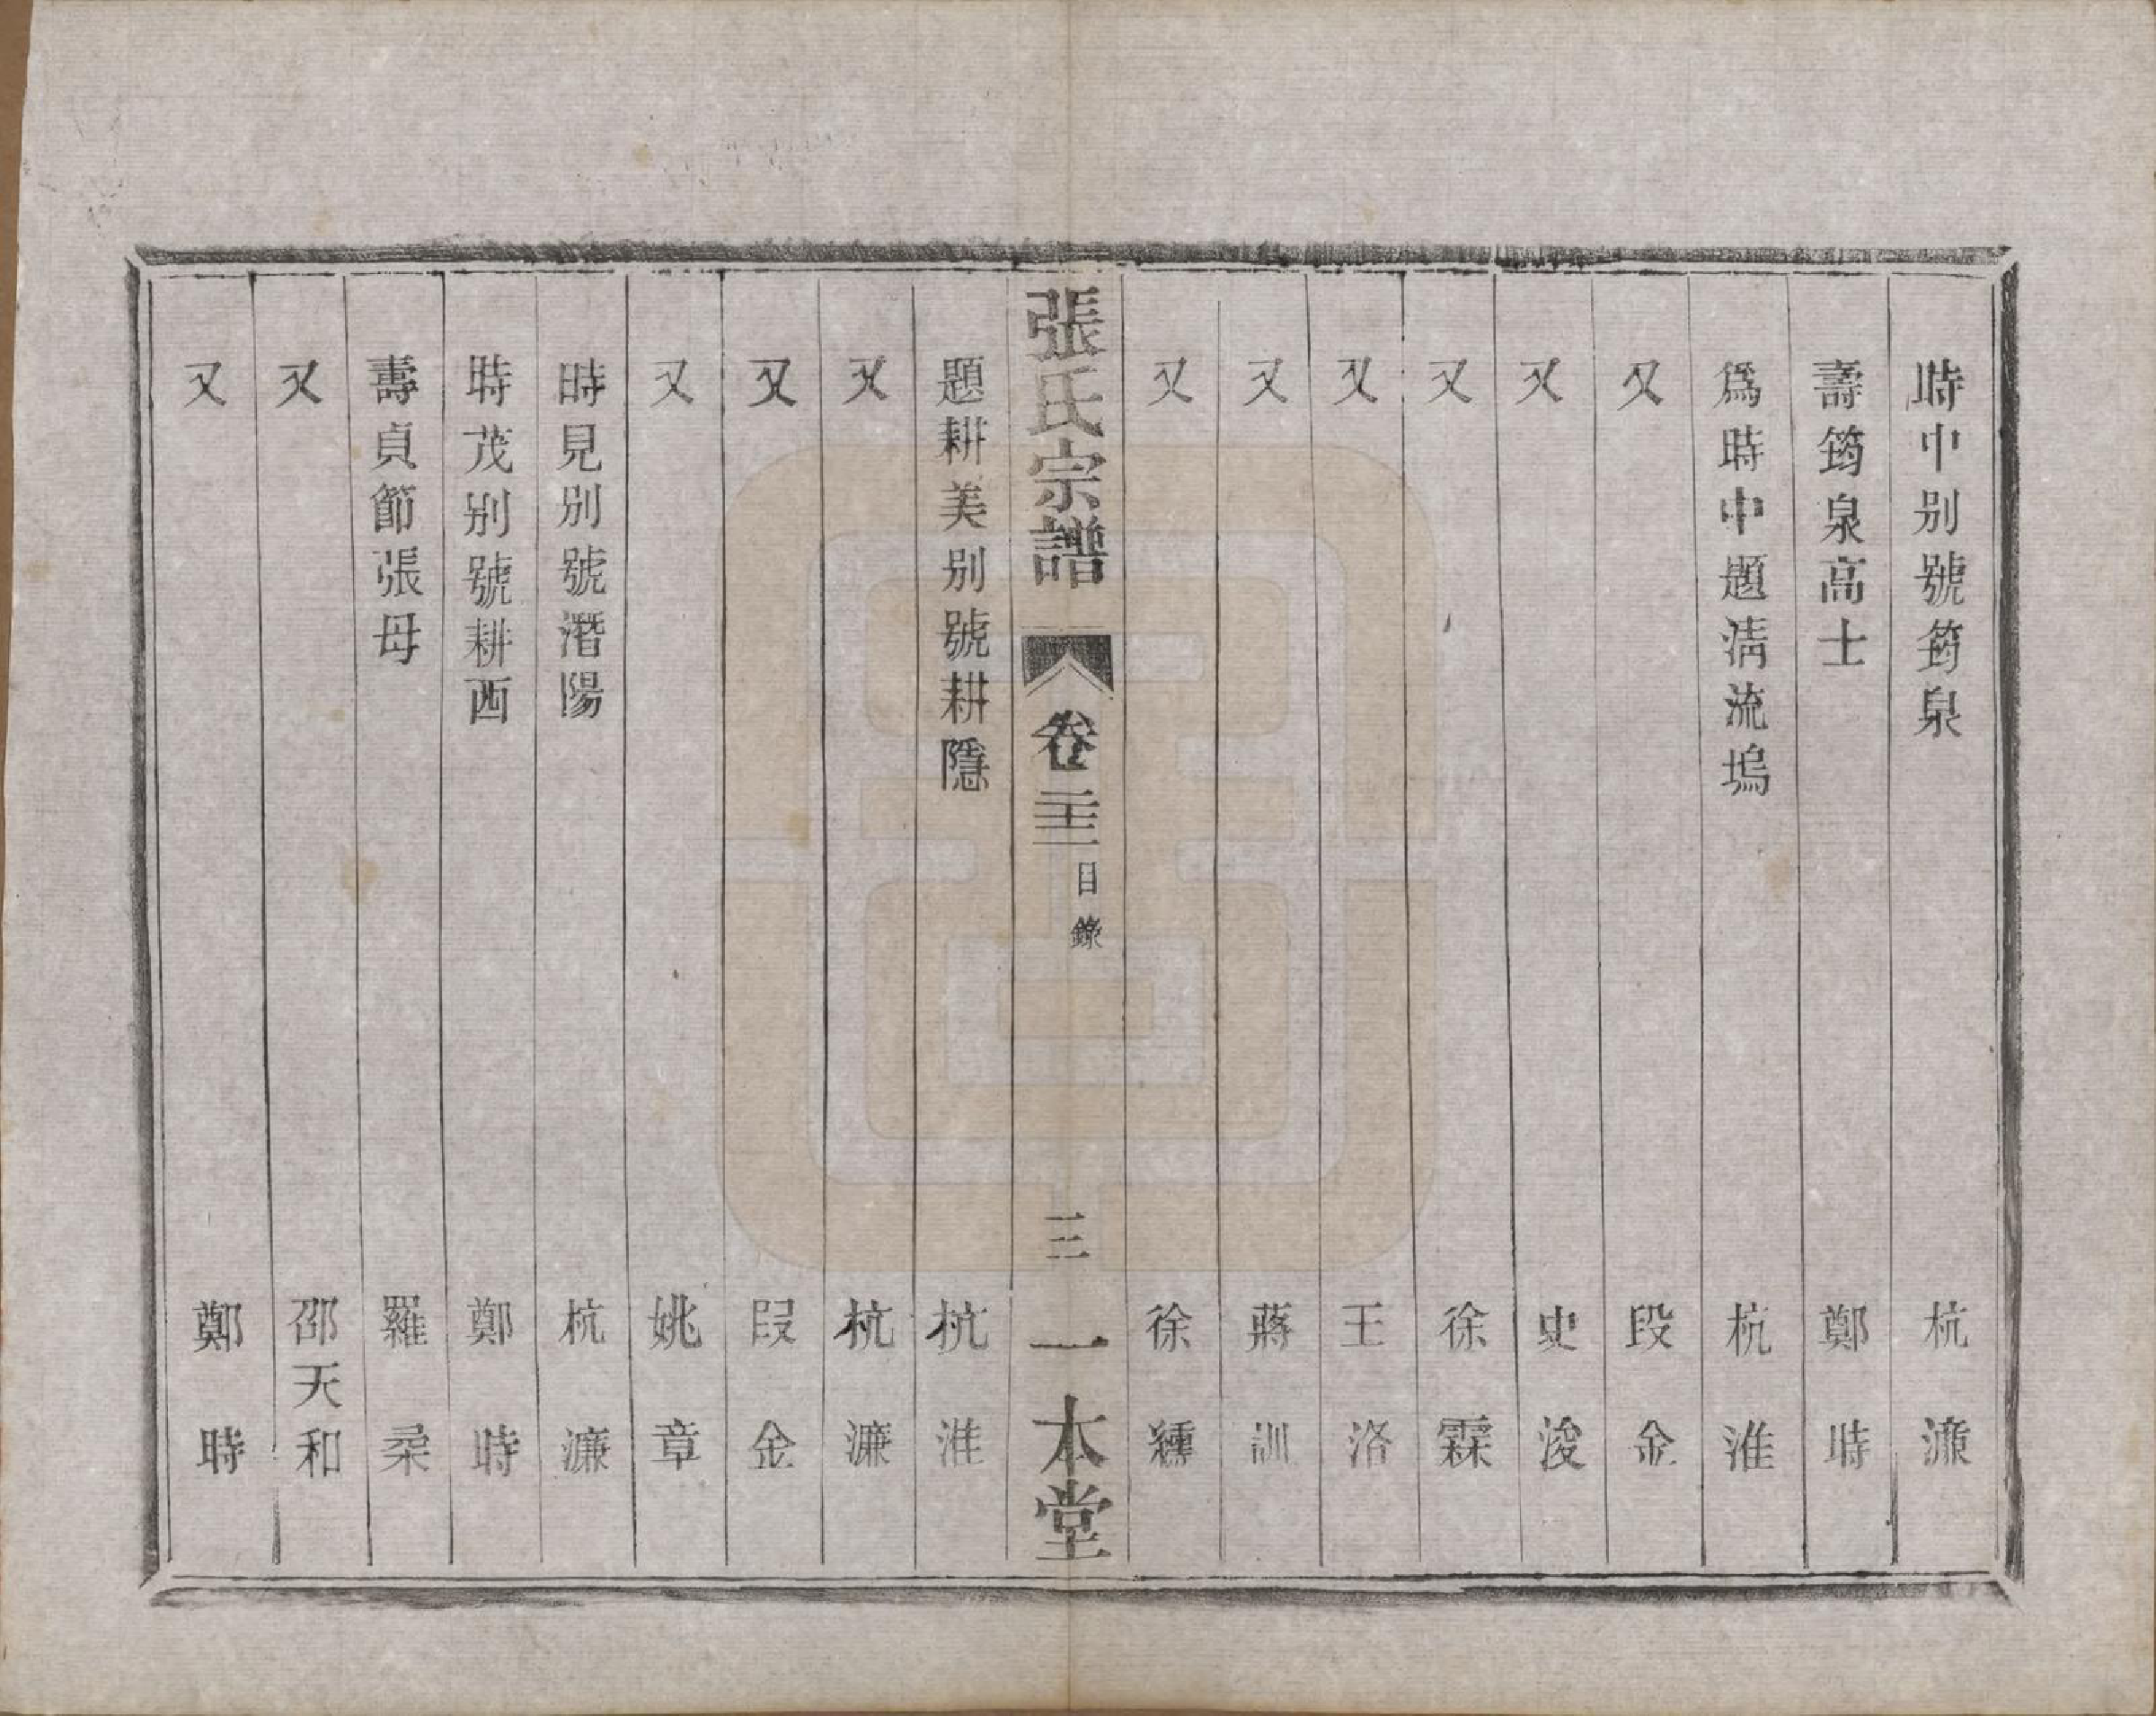 時中别號筠泉　杭濂
壽筠泉高士　鄭時
爲時中題淸流塢　杭淮
又　段金
又　史浚
又　徐霖
又　王洛
又　蔣訓
又　徐纁
張氏宗譜　卷二十二　目錄　三　一本堂
題耕美别號耕隱　杭淮
又　杭濂
又　段金
又　姚章
時見别號潛陽　杭濂
時茂别號耕西　鄭時
壽貞節張母　羅柔
又　邵天和
又　鄭時